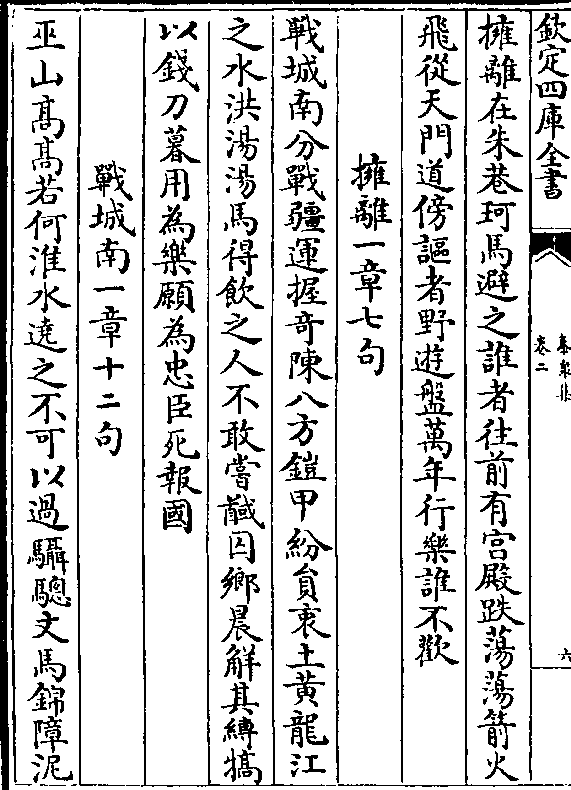 欽定四庫全書
卷二
六
擁離在朱巷珂馬避之誰者往前有宫殿跌蕩蕩箭火
飛從天門道傍謳者野遊盤萬年行樂誰不歡
擁離一章七句
戰城南分戰疆運握奇陳八方鎧甲紛負衷土黄龍江
之水洪湯湯馬得飲之人不敢嘗馘囚鄉晨解其縛犒
以錢刀暮用為樂願為忠臣死報國
戰城南一章十二句
巫山髙髙若何淮水遶之不可以過驦驄文馬錦障泥